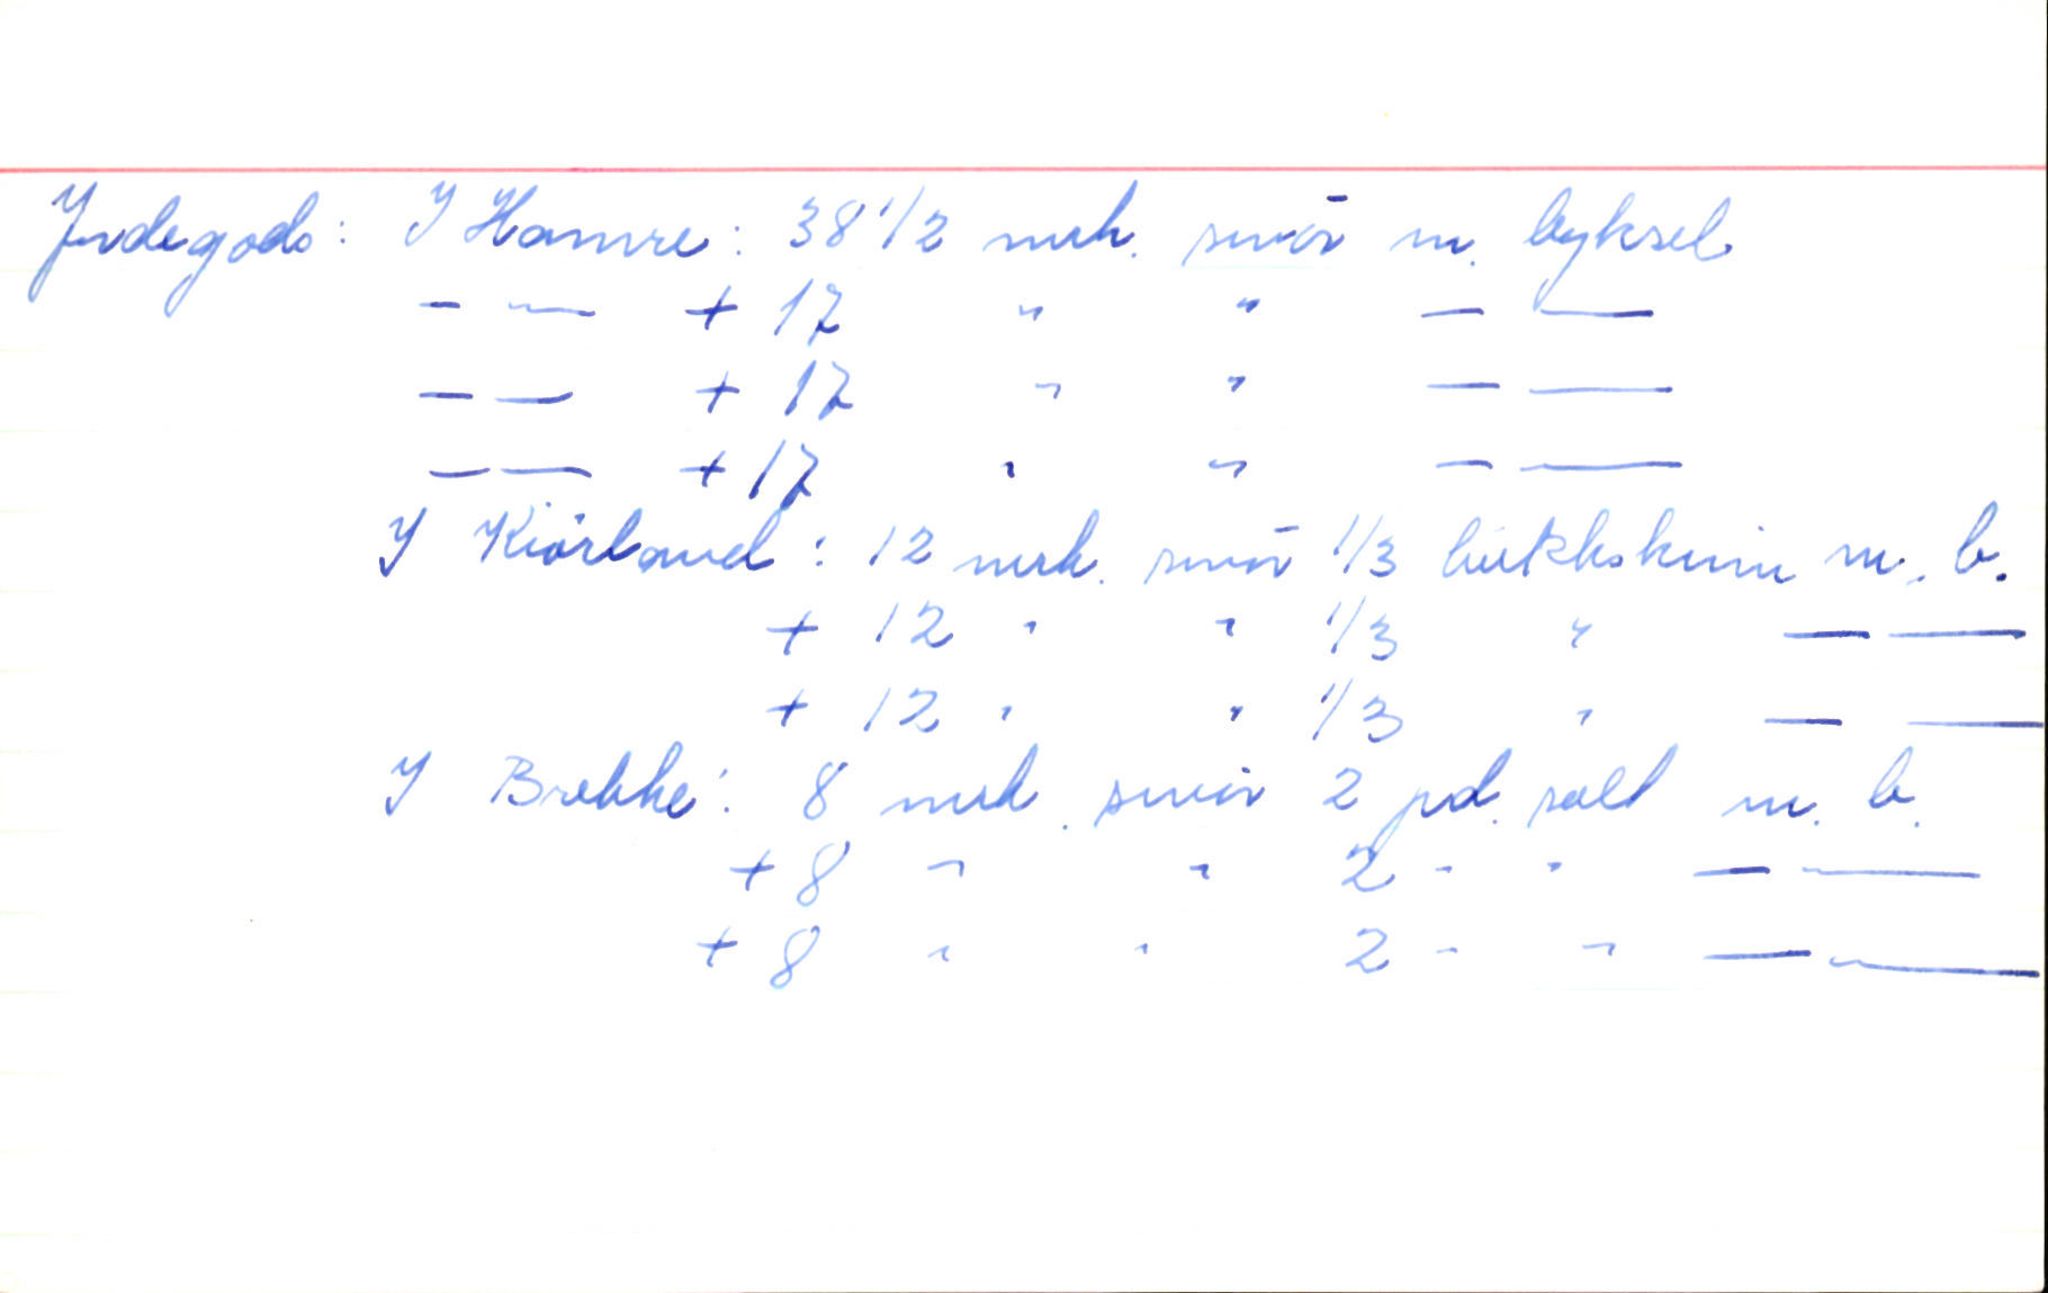 Jordegods: I Hamre: 38 1/2 mrk. smör m. byksel
- — + 17 " " — —
— — + 17 " " — —
— — + 17 " " — —
I Kiörland: 12 mrk. smör 1/3 bukkskinn m. b.
+ 12 " " 1/3 " — —
+ 12 " " 1/3 " — —
I Brekke: 8 mrk. smör 2 pd. salt m. b.
+ 8 " " 2 " " — —
+ 8 " " 2 " " — —